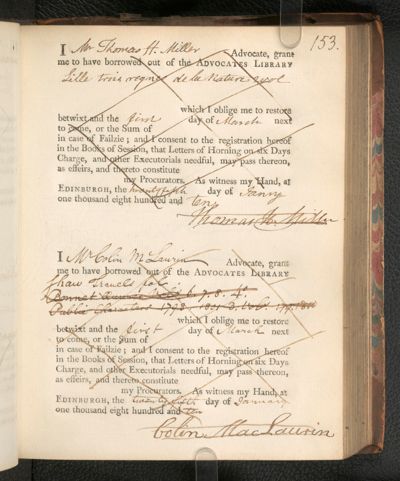 153.
I Mr Thomas H. Miller Advocate, grant
me to have borrowed out of the ADVOCATES LIBRARY
Lille trois regnes de la Nature 2 vol
which I oblige me to restore
betwixt and the first day of March next
to come, or the Sum of
in case of Failzie; and I consent to the registration hereof
in the Books of Session, that Letters of Horning on six Days
Charge, and other Executorials needful, may pass thereon,
as effeirs, and thereto constitute
my Procurators. As witness my Hand, at
EDINBURGH, the day of Janry
one thousand eight hundred and ten
Thomas H. Miller
I Mr Colin McLaurin Advocate, grant
me to have borrowed out of the ADVOCATES LIBRARY
Shaw Travels fol.
7. 8. 4o.
Public Characters 1798 1801 3. Vol.
which I oblige me to restore
betwixt and the first day of March next
to come, or the Sum of
in case of Failzie; and I consent to the registration hereof
in the Books of Session, that Letters of Horning on six Days
Charge, and other Executorials needful, may pass thereon,
as effeirs, and thereto constitute
my Procurators. As witness my Hand, at
EDINBURGH, the twenty fifth day of January
one thousand eight hundred and ten
Colin MacLaurin